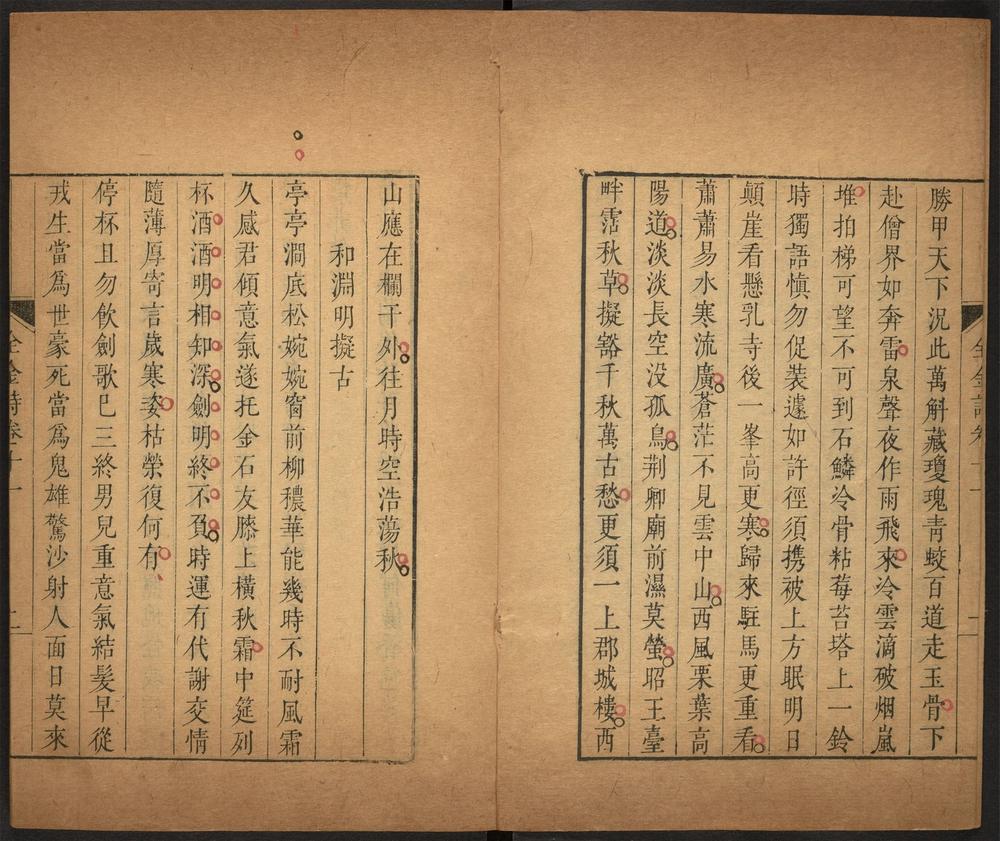 勝甲天下況此萬斛藏瓊瑰靑蛟百道走玉骨下
赴僧界如奔雷泉聲夜作雨飛來冷雲滴破烟嵐
堆拍梯可望不可到石鱗冷骨粘莓苔塔上一鈴
時獨語愼勿促裝遽如許徑須攜被上方眠明日
顛崖看懸乳寺後一峯高更寒歸來駐馬更重看
蕭蕭易水寒流廣蒼茫不見雲中山西風栗葉高
陽道淡淡長空没孤鳥荆卿廟前濕莫螢昭王臺
畔霑秋草擬豁千秋萬古愁更須一上郡城樓西
山應在欄干外往月時空浩蕩秋
和淵明擬古
亭亭澗底松婉婉窗前柳穠華能幾時不耐風霜
久感君傾意氣遂托金石友膝上橫秋霜中筵列
杯酒酒明相知深劍明終不負時運有代謝交情
隨薄厚寄言歲寒姿枯榮復何有
停杯且勿飲劍歌巳三終男兒重意氣結髮早從
戎生當爲世豪死當爲鬼雄驚沙射人面日莫來
全金詩卷二十一